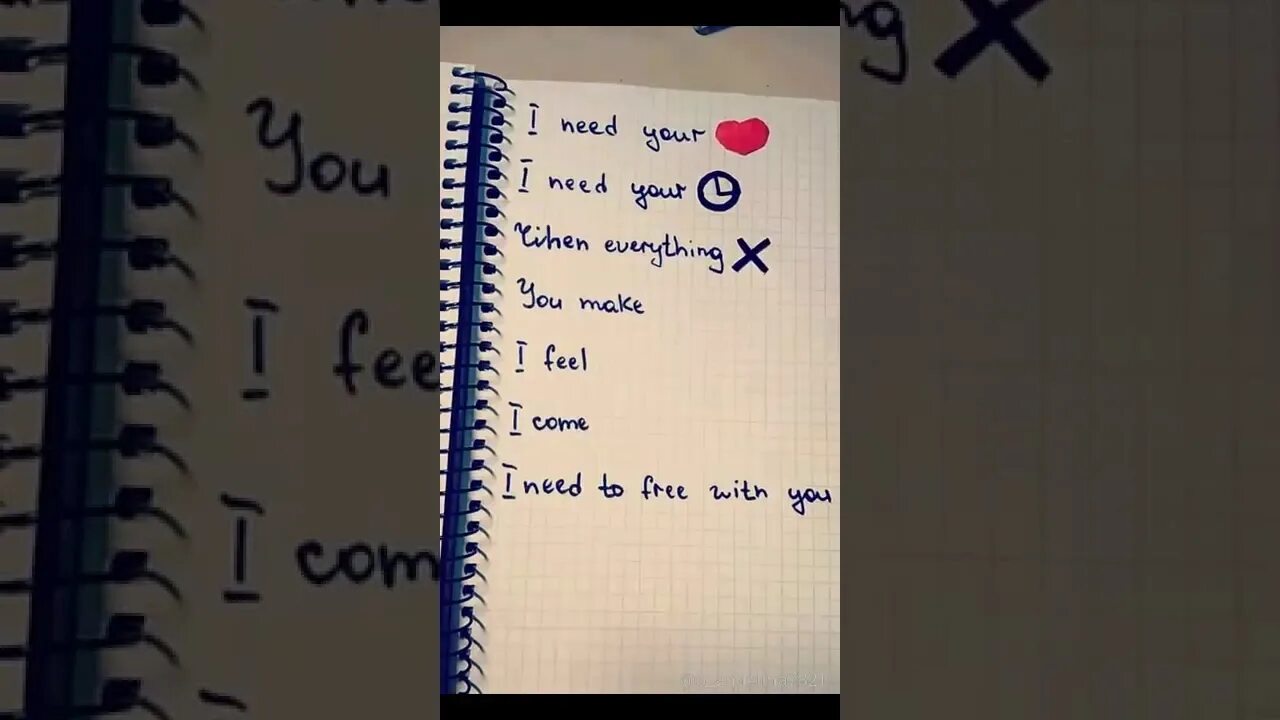 I need your ❤
I need your 🕒
When everything ✖
You make
I feel
I come
I need to free with you